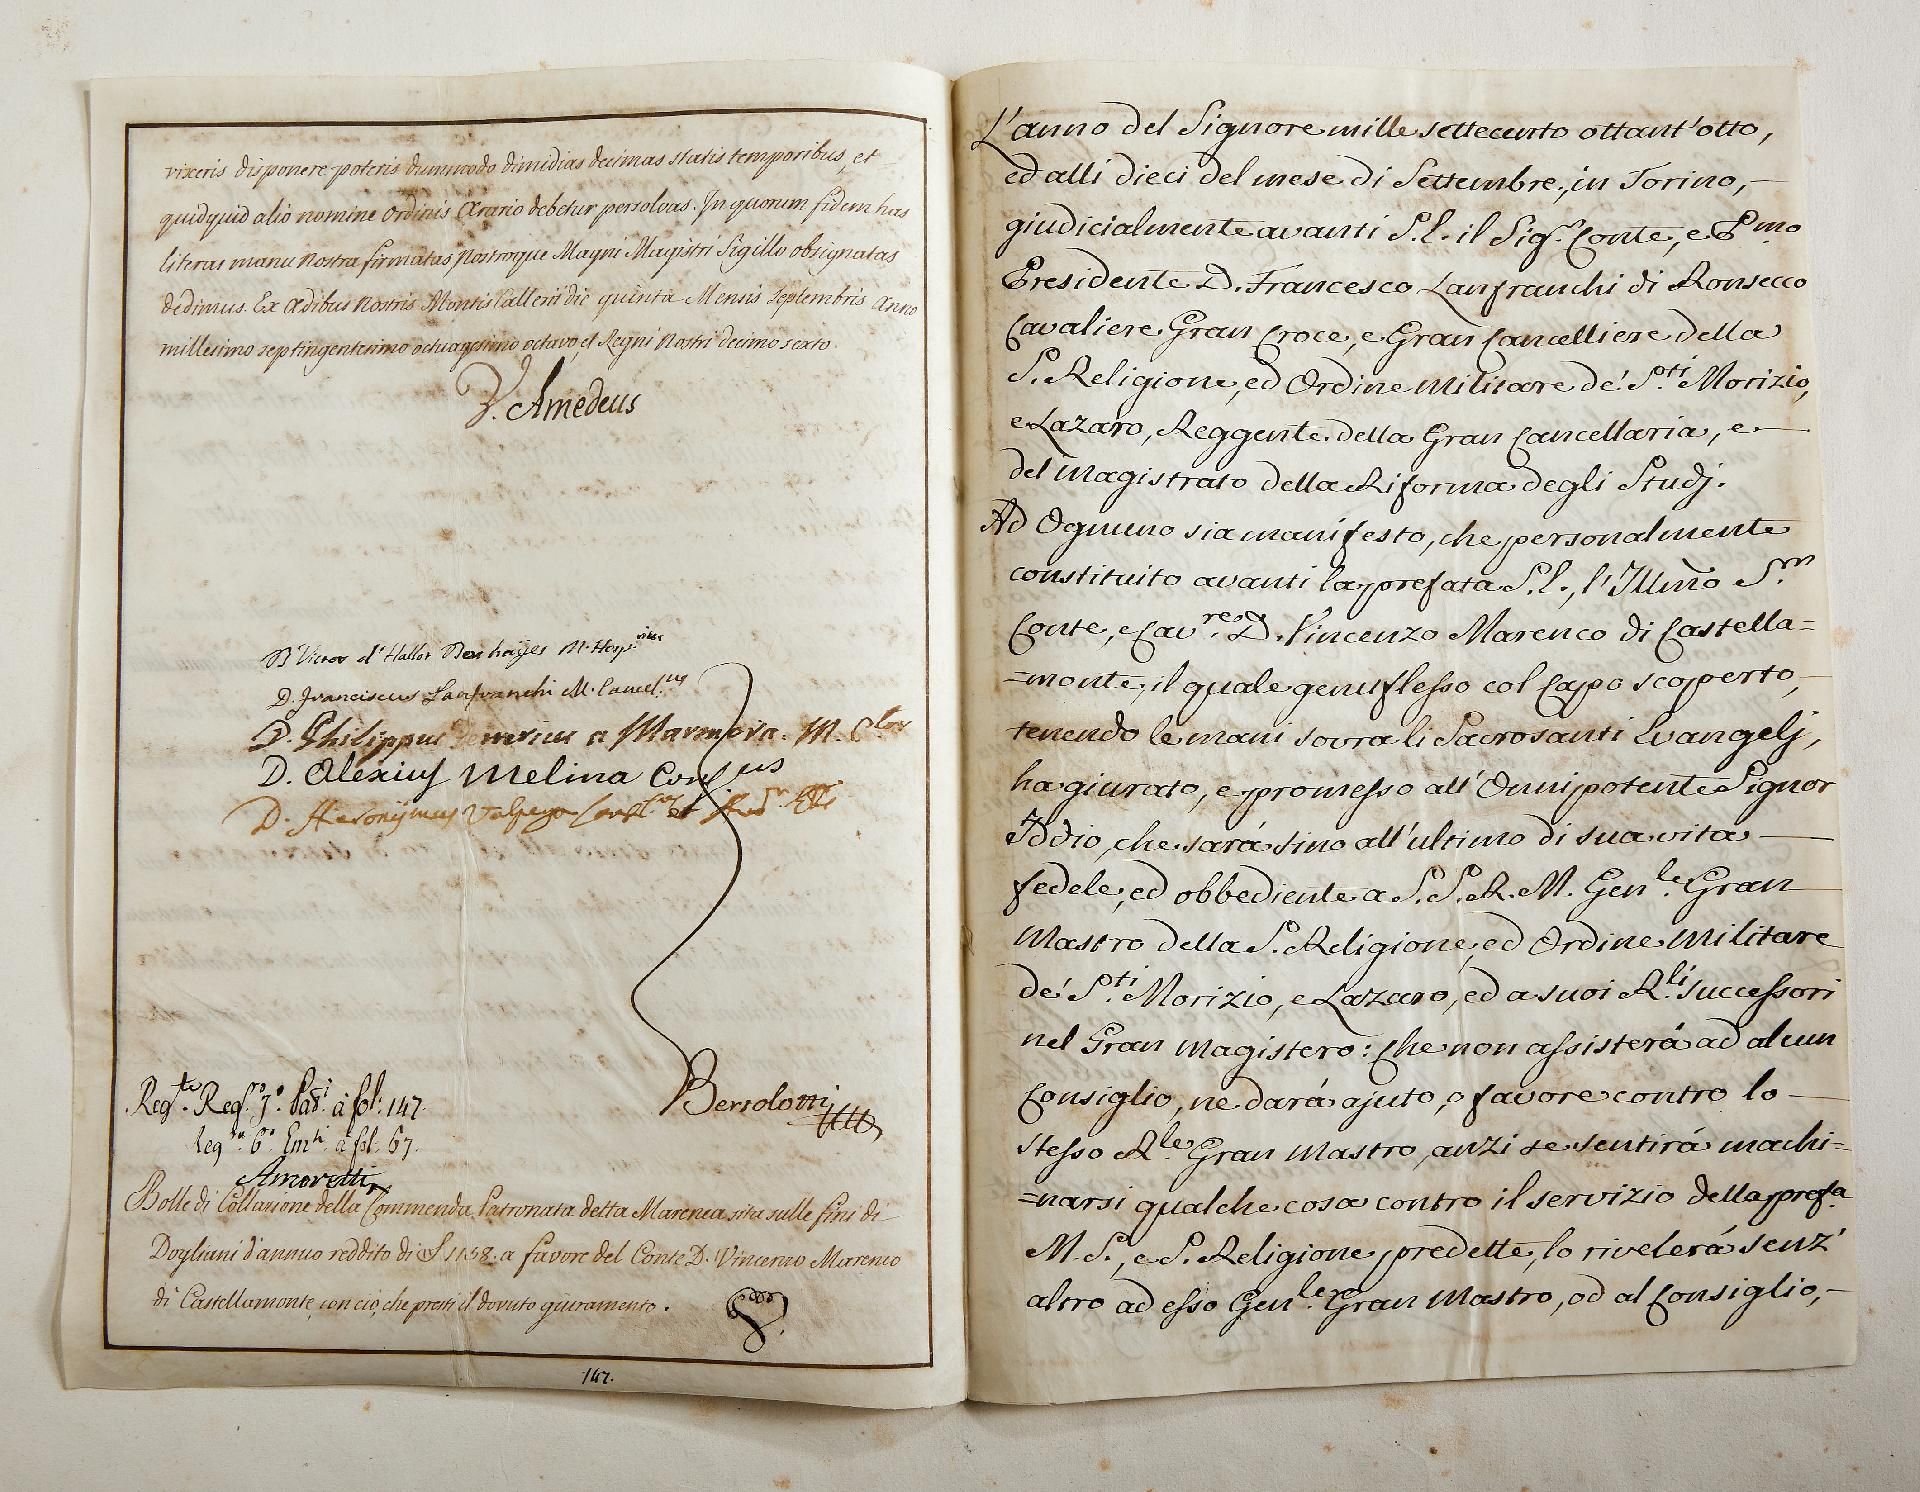 vixeris disponere poteris dummodo dimidias decimas statis temporibus, et
quidquid alio nomine Ordinis Ærario debetur persolvas. In quorum fidem has
literas manu nostra firmatas, nostroque Magni Magistri Sigillo obsignatas
dedimus. Ex Ædibus nostris Montis Callerii die quinta Mensis Septembris Anno
millesimo septingentesimo octuagesimo octavo, et Regni Nostri decimo sexto.
V. Amedeus
D. Franciscus Lanfranchi M. Cancel.us
D. Philippus a M.
D. Alexius Melina
D. Hieronymus
Bertolotti
Reg.ta Reg.ro 7.o Pad.i a fol: 147.
Reg. 6.o Em.ti a fol. 67.
Amoretti
Bolle di Collazione della Commenda Patronata detta Marenca sita sulle fini di
Dogliani d'annuo reddito di £ 1158. a favore del Conte D. Vincenzo Marenco
di Castellamonte, con ciò, che presti il dovuto giuramento.
147.
L'anno del Signore mille settecento ottant'otto,
ed alli dieci del mese di Settembre, in Torino, —
giudicialmente avanti S.E. il Sig.r Conte, e P.mo
Presidente D. Francesco Lanfranchi di Ronsecco
Cavaliere Gran Croce, e Gran Cancelliere della
S. Religione, ed Ordine Militare de' S.ti Morizio,
e Lazaro, Reggente della Gran Cancellaria, e —
del Magistrato della Riforma degli Studj.
Ad Ognuno sia manifesto, che personalmente
constituito avanti la prefata S.E., l'Illmo S.r
Conte, e Cav.re D. Vincenzo Marenco di Castella=
=monte, il quale genuflesso col Capo scoperto, —
tenendo le mani sovra li Sacrosanti Evangelj,
ha giurato, e promesso all'Omnipotente Signor
Iddio, che sarà sino all'ultimo di sua vita —
fedele, ed obbediente a S.S.R.M. Gen.le Gran
Mastro della S. Religione, ed Ordine Militare
de' S.ti Morizio, e Lazaro, ed a suoi R.li successori
nel Gran Magistero: Che non assisterà ad alcun
Consiglio, ne darà ajuto, o favore contro lo —
stesso R.le Gran Mastro, anzi se sentirà machi=
=narsi qualche cosa contro il servizio della prefa.ta
M.S., e S. Religione predette, lo rivelerà senz'
altro ad esso Gen.le Gran Mastro, od al Consiglio, —